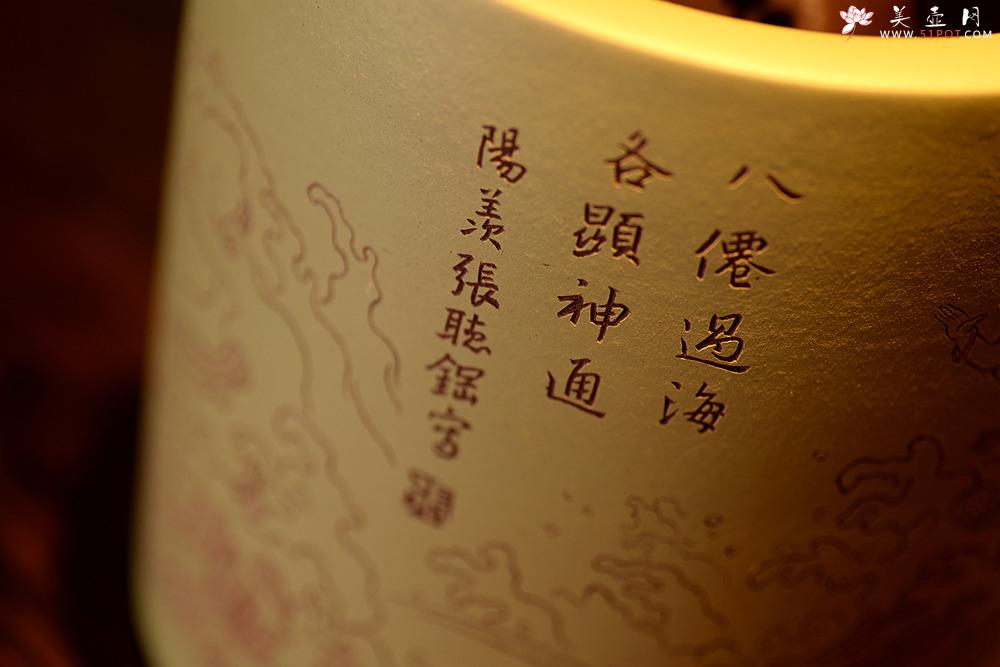 八僊過海
各顯神通
陽羨張聴鋸㝐
美壶网
WWW.51POT.COM